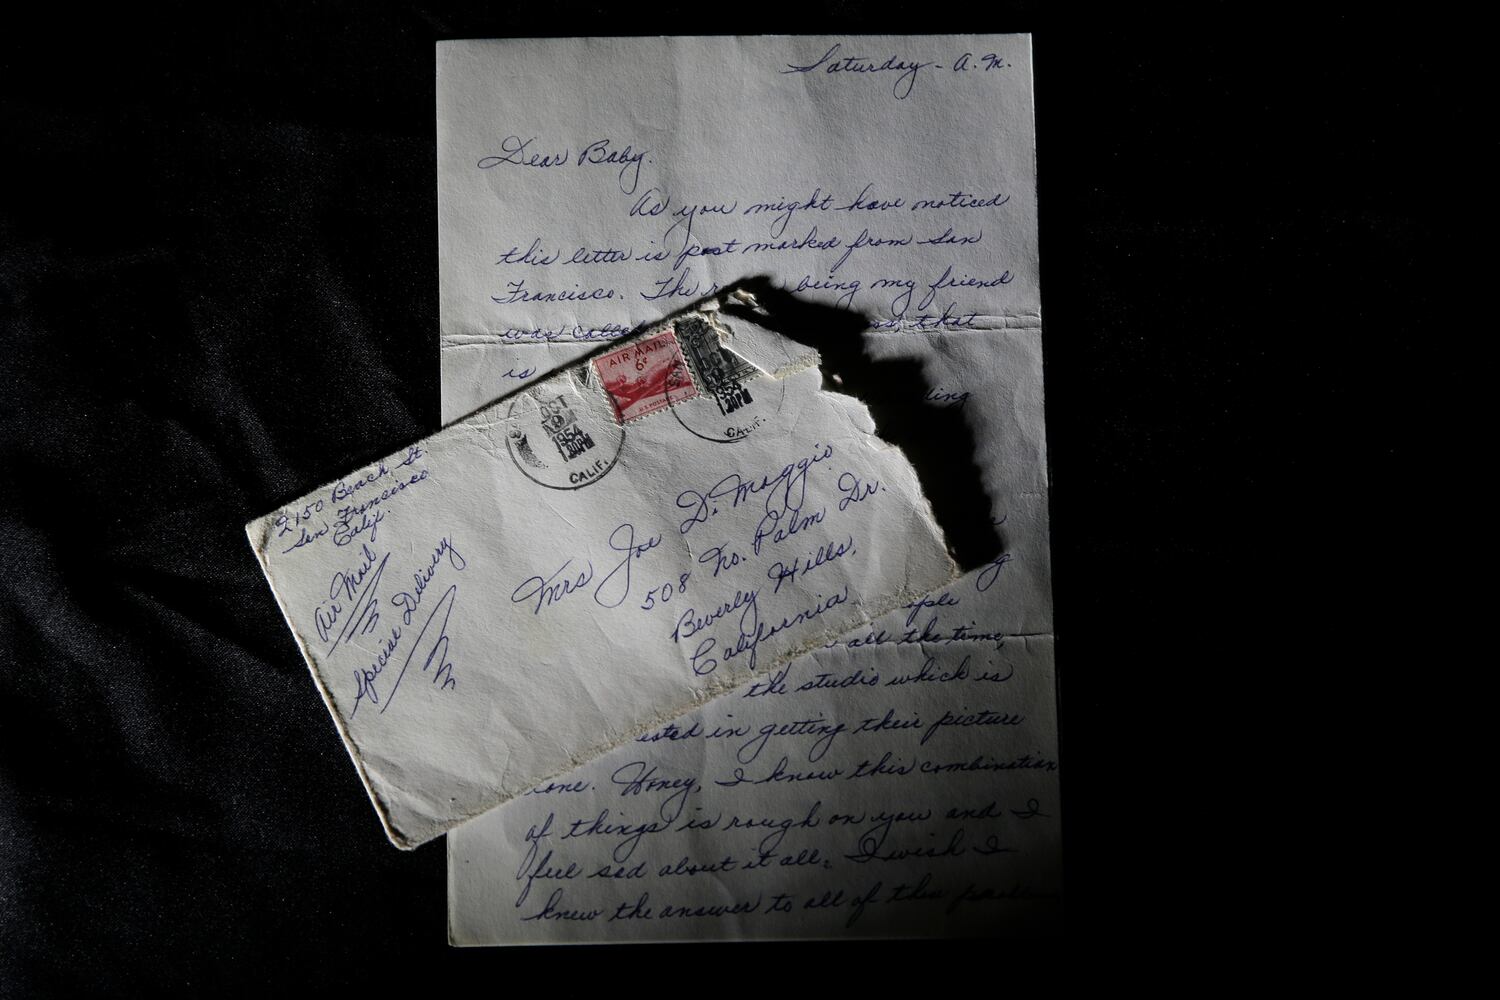 Saturday - A.M.
Dear Baby.
As you might have noticed
this letter is post marked from San
Francisco. The being my friend
was that
is
ling
all the time,
the studio which is
ested in getting their picture
one. Honey, I know this combination
of things is rough on you and I
feel sad about it all. I wish I
knew the answer to all of this
2150 Beach St.
San Francisco
Calif.
Air Mail
Special Delivery
AIR MAIL
6¢
U.S. POSTAGE
OCT
1954
PM
CALIF.
1954
PM
CALIF.
Mrs Joe Di Maggio
508 No. Palm Dr.
Beverly Hills,
California